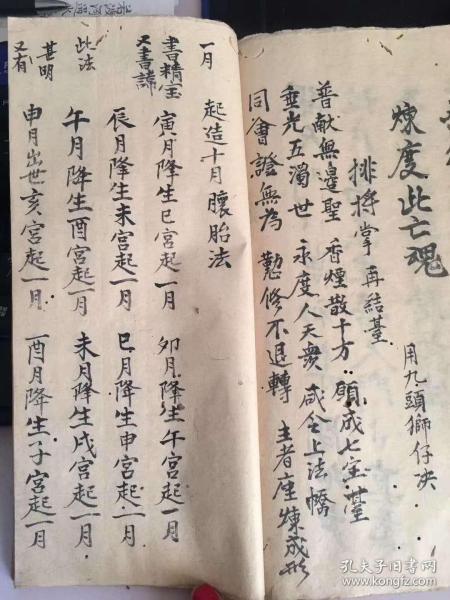 煉度此亡魂
用九頭獅仔決
排將掌再結臺
普獻無邊聖 香煙散十方 願成七宝臺
垂光五濁世 永度人天衆 咸令上法橋
同會證無為 勤修不退轉 主者座煉成形
一月 起造十月腹胎法
書精宝
又書諱
寅月降生巳宮起一月 卯月降生午宮起一月
辰月降生未宮起一月 巳月降生申宮起一月
此法
午月降生酉宮起一月 未月降生戌宮起一月
甚明
又有
申月出世亥宮起一月 酉月降生子宮起一月
孔夫子旧书网